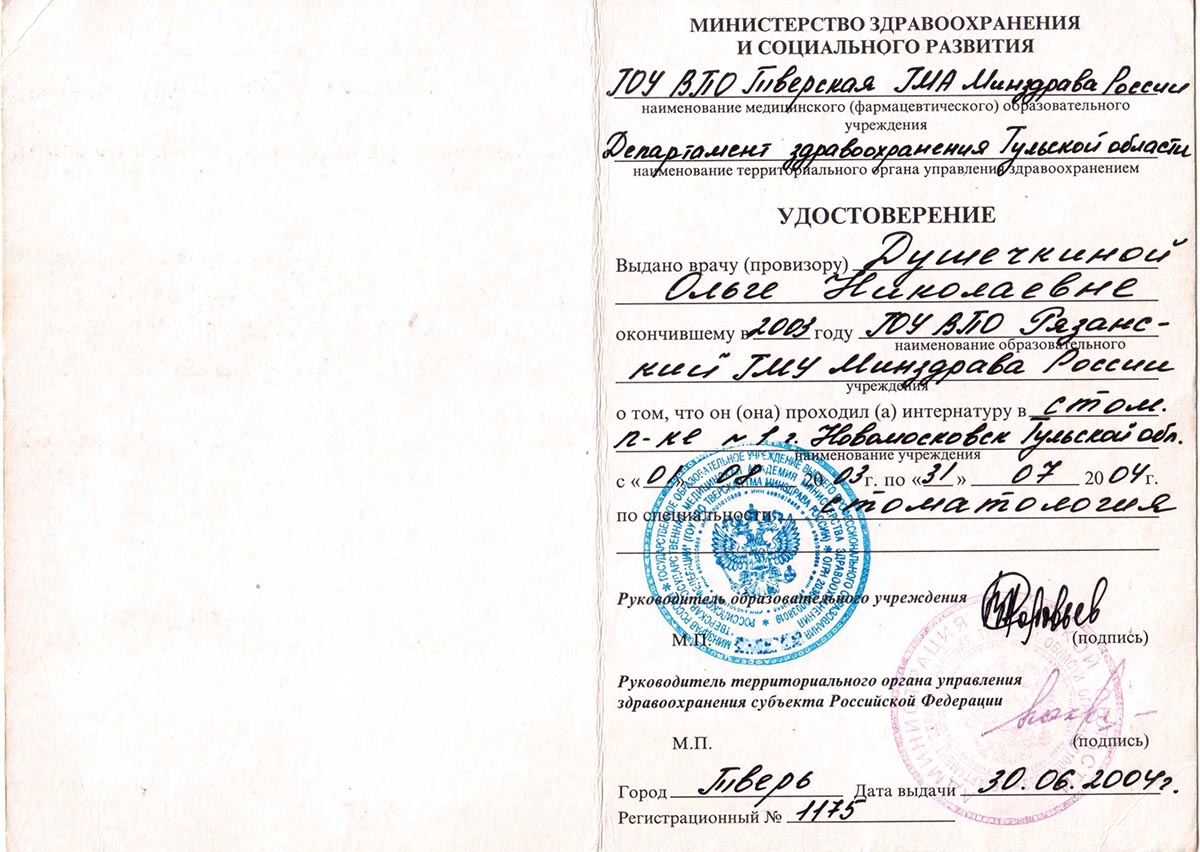 МИНИСТЕРСТВО ЗДРАВООХРАНЕНИЯ
И СОЦИАЛЬНОГО РАЗВИТИЯ
ГОУ ВПО Тверская ГМА Минздрава России
наименование медицинского (фармацевтического) образовательного
учреждения
Департамент здравоохранения Тульской области
наименование территориального органа управления здравоохранением
УДОСТОВЕРЕНИЕ
Выдано врачу (провизору) Душечкиной
Ольге Николаевне
окончившему в 2003 году ГОУ ВПО Рязанс-
наименование образовательного
кий ГМУ Минздрава России
учреждения
о том, что он (она) проходил (а) интернатуру в стом.
п-ке №1 г. Новомосковск Тульской обл.
наименование учреждения
с «01» 08 2003 г. по «31» 07 2004 г.
по специальности стоматология
Руководитель образовательного учреждения
М.П.
(подпись)
Руководитель территориального органа управления
здравоохранения субъекта Российской Федерации
М.П.
(подпись)
Город Тверь Дата выдачи 30.06.2004г.
Регистрационный № 1175